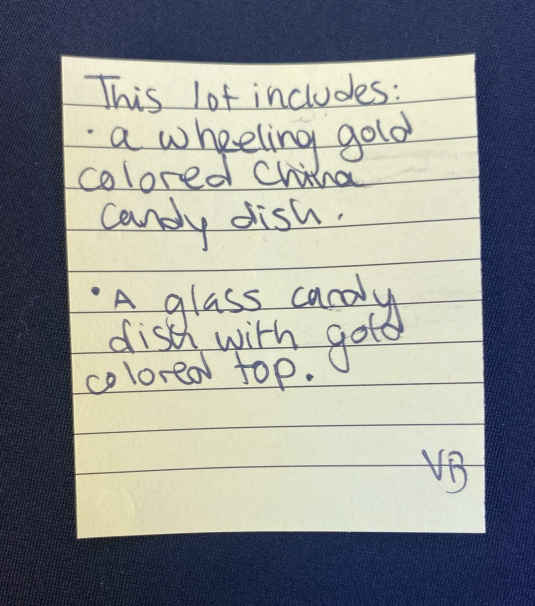 This lot includes:
• a wheeling gold
colored China
candy dish.
• A glass candy
dish with gold
colored top.
VB